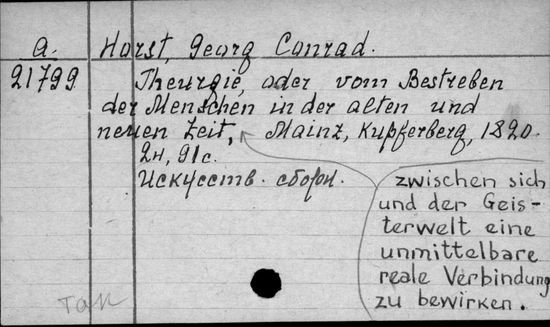 a.
21799
Horst, Georg Conrad.
Theurgie, oder vom Bestreben
der Menschen in der alten und
neuen Zeit, Mainz, Kupferberg, 1820.
2н, 91с.
Искусств. сборн.
zwischen sich
und der Geis-
terwelt eine
unmittelbare
reale Verbindung
zu bewirken.
Так